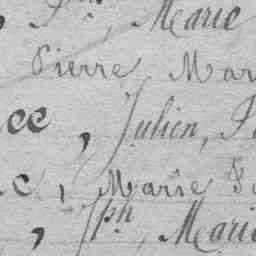 , Jph, Marie
Pierre, Mar
ce, Julien, J
c, Marie J
, Jph, Marie